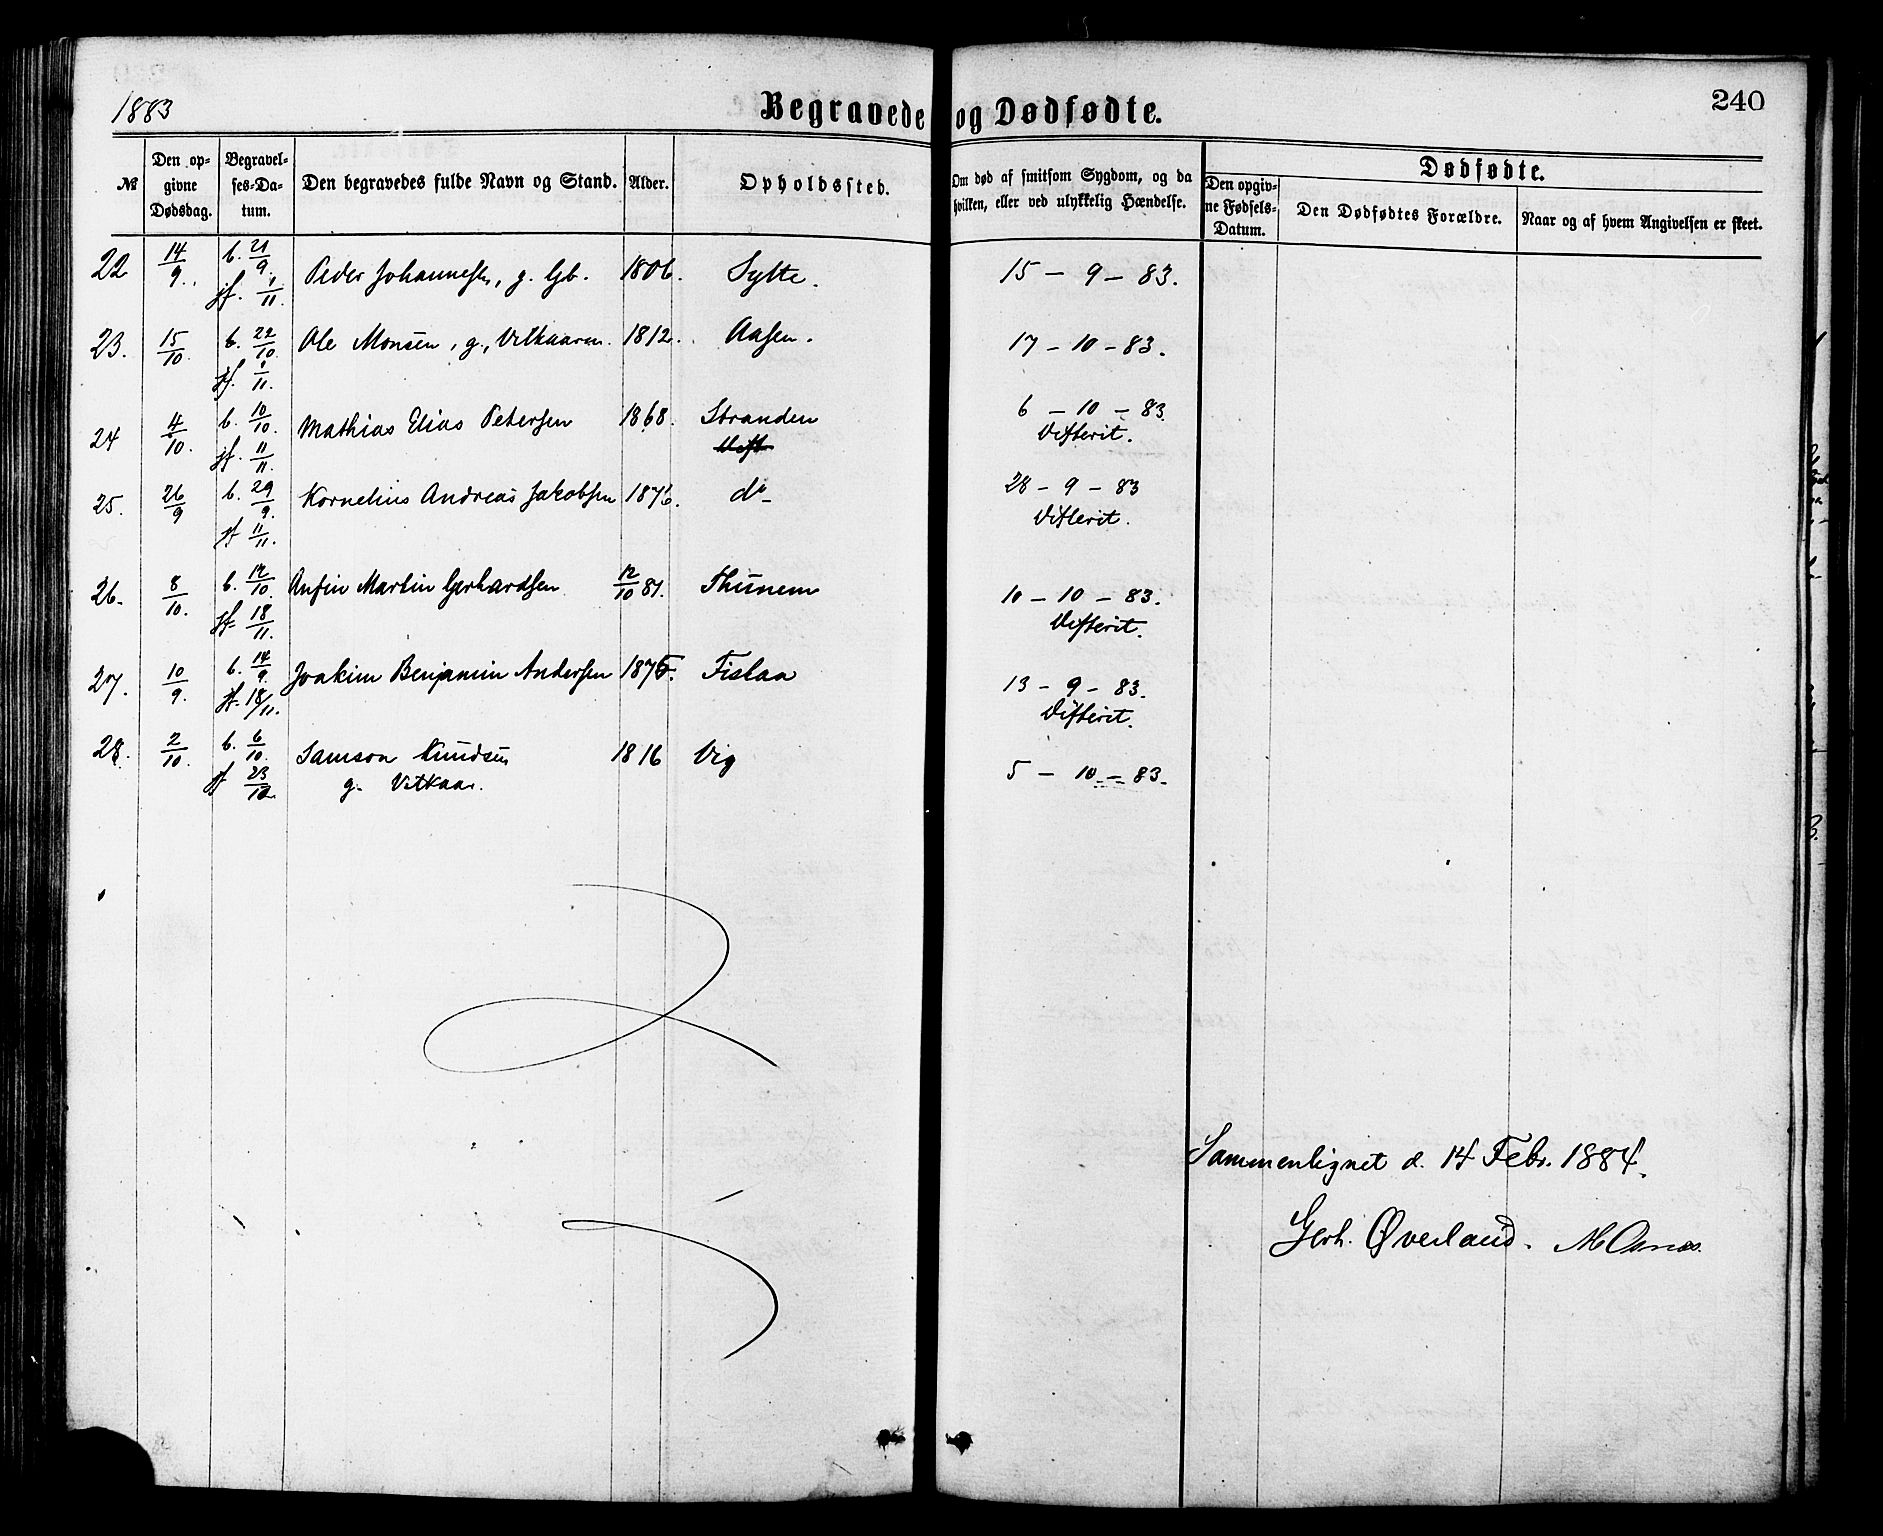 1883
Begravede og Dødfødte.
240
№
Den op-
givne
Dødsdag.
Begravel-
ses-Da-
tum.
Den begravedes fulde Navn og Stand.
Alder.
Opholdssted.
Om død af smitsom Sygdom, og da
hvilken, eller ved ulykkelig Hændelse.
Dødfødte.
Den opgiv-
ne Fødsels-
Datum.
Den Dødfødtes Forældre.
Naar og af hvem Angivelsen er skeet.
22 14/9. b. 21/9. Peder Johannessen, g. Gb. 1806. Sylte. 15 - 9 - 83.
jf. 1/11.
23. 15/10. b. 22/10. Ole Monsen, g., Vilkaarm. 1812. Aasen. 17 - 10 - 83.
jf. 1/11.
24 4/10. b. 10/10. Mathias Elias Petersen 1868. Stranden 6 - 10 - 83.
jf. 11/11. Difterit.
25. 26/9 b. 29/9. Kornelius Andreas Jakobsen 1876. do 28 - 9 - 83
jf 11/11. Difterit.
26. 8/10. b. 12/10. Anfin Martin Gerhardsen 12/10 81. Thunem 10 - 10 - 83.
jf. 18/11. Difterit.
27. 10/9. b. 14/9. Joakim Benjamin Andersen 1875. Fislaa 13 - 9 - 83.
jf. 18/11. Difterit.
28. 2/10. b. 6/10. Samson Knudsen 1816 Vig 5 - 10 - 83.
jf 23/12. g. Vilkaar.
Sammenlignet d. 14 Febr. 1884.
Gerh. Øverland.